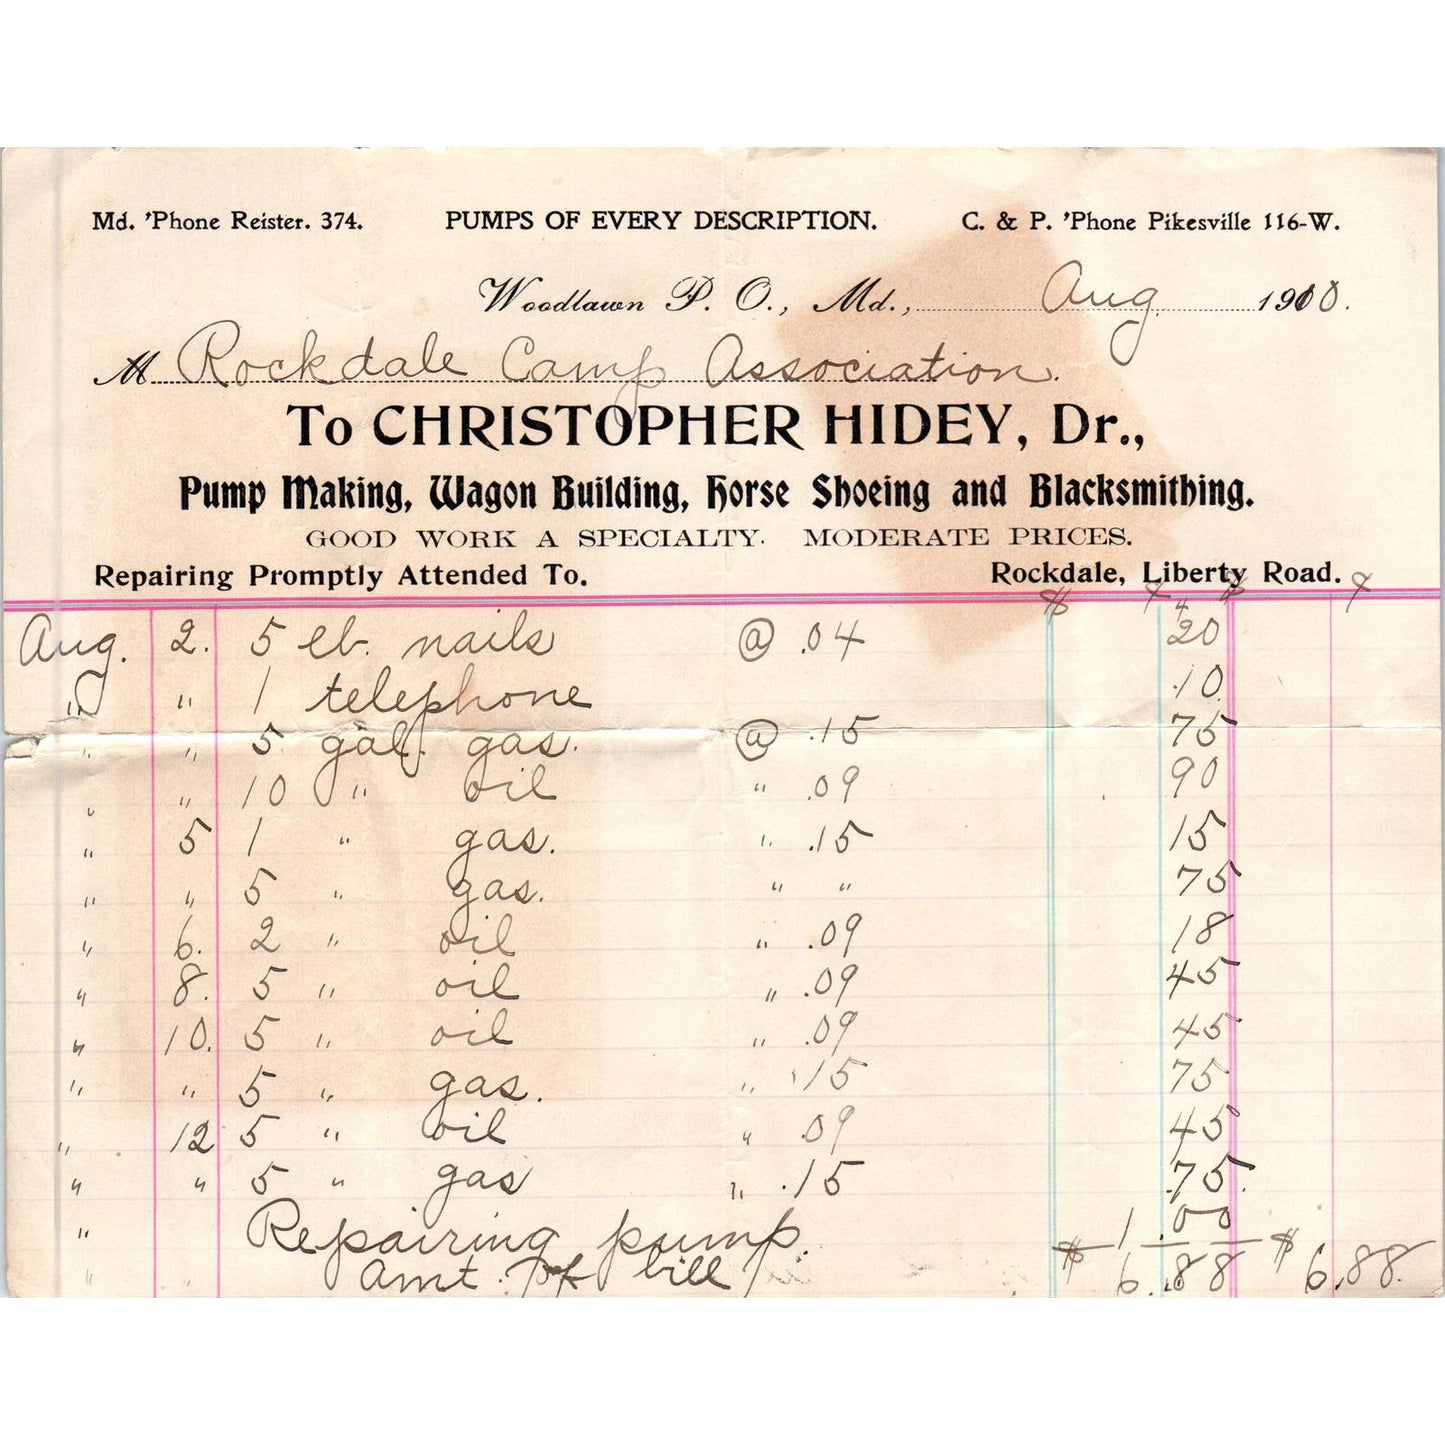 Md. 'Phone Reister. 374. PUMPS OF EVERY DESCRIPTION. C. & P. 'Phone Pikesville 116-W.
Woodlawn P. O., Md., Aug. 1910.
M Rockdale Camp Association.
To CHRISTOPHER HIDEY, Dr.,
Pump Making, Wagon Building, Horse Shoeing and Blacksmithing.
GOOD WORK A SPECIALTY. MODERATE PRICES.
Repairing Promptly Attended To. Rockdale, Liberty Road.
$ ¢ $ ¢
Aug. 2. 5 lb. nails @ .04 20
" " 1 telephone .10
" " 5 gal. gas. @ .15 75
" " 10 " oil " .09 90
" 5 1 " gas. " .15 15
" " 5 " gas. " " 75
" 6. 2 " oil " .09 18
" 8. 5 " oil " .09 45
" 10. 5 " oil " .09 45
" " 5 " gas. " .15 75
" 12 5 " oil " .09 45
" " 5 " gas " .15 .75.
" Repairing pump. 1.00
" " Amt. of bill $ 6.88 $ 6.88.